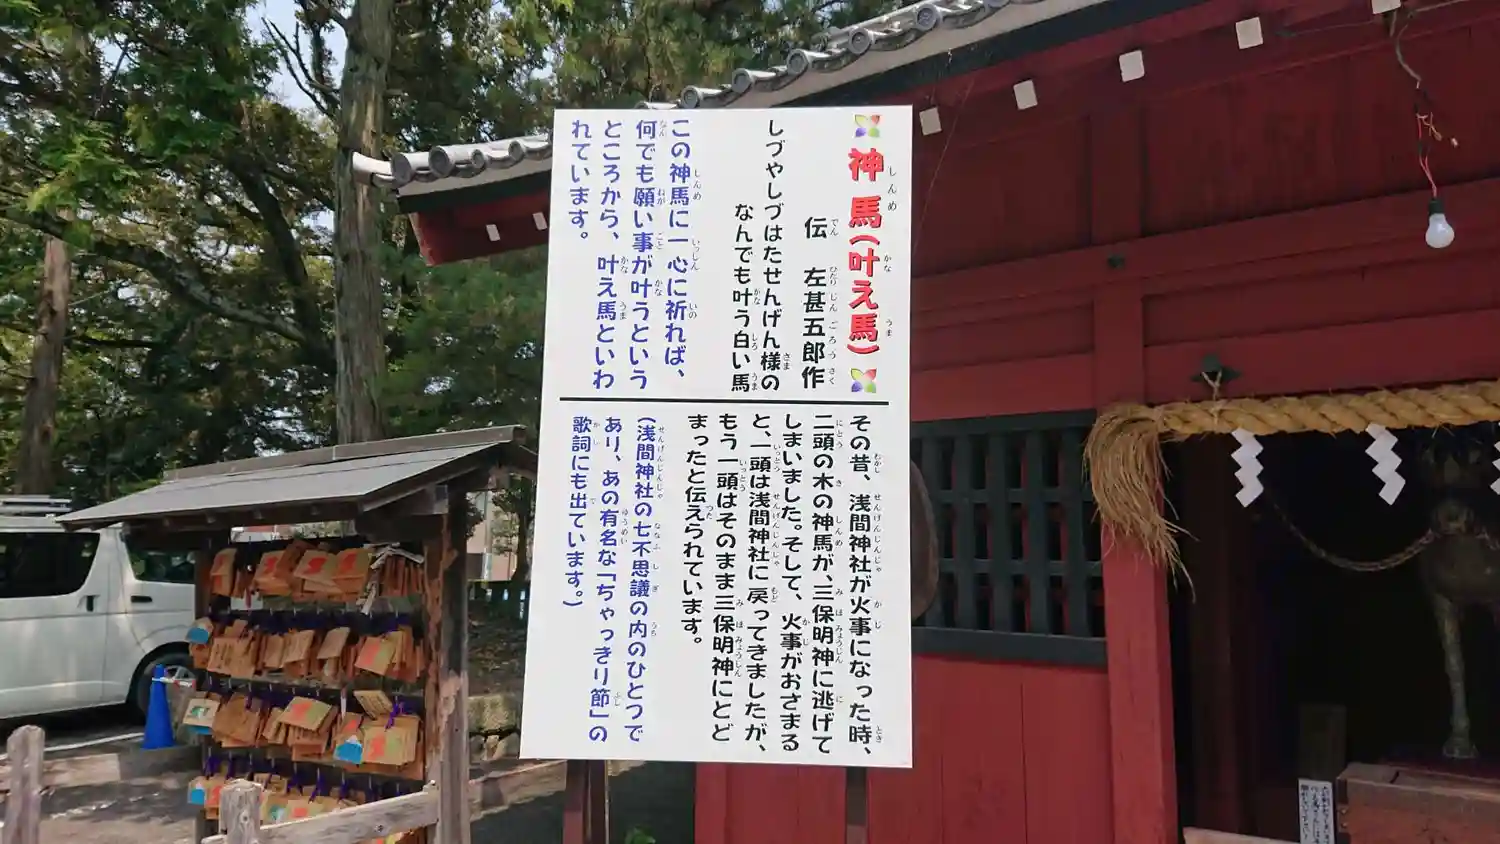 神馬(叶え馬)
伝 左甚五郎作
しづやしづはたせんげん様の
なんでも叶う白い馬
この神馬に一心に祈れば、
何でも願い事が叶うという
ところから、叶え馬といわ
れています。
その昔、浅間神社が火事になった時、
二頭の木の神馬が、三保明神に逃げて
しまいました。そして、火事がおさまる
と、一頭は浅間神社に戻ってきましたが、
もう一頭はそのまま三保明神にとど
まったと伝えられています。
(浅間神社の七不思議の内のひとつで
あり、あの有名な「ちゃっきり節」の
歌詞にも出ています。)